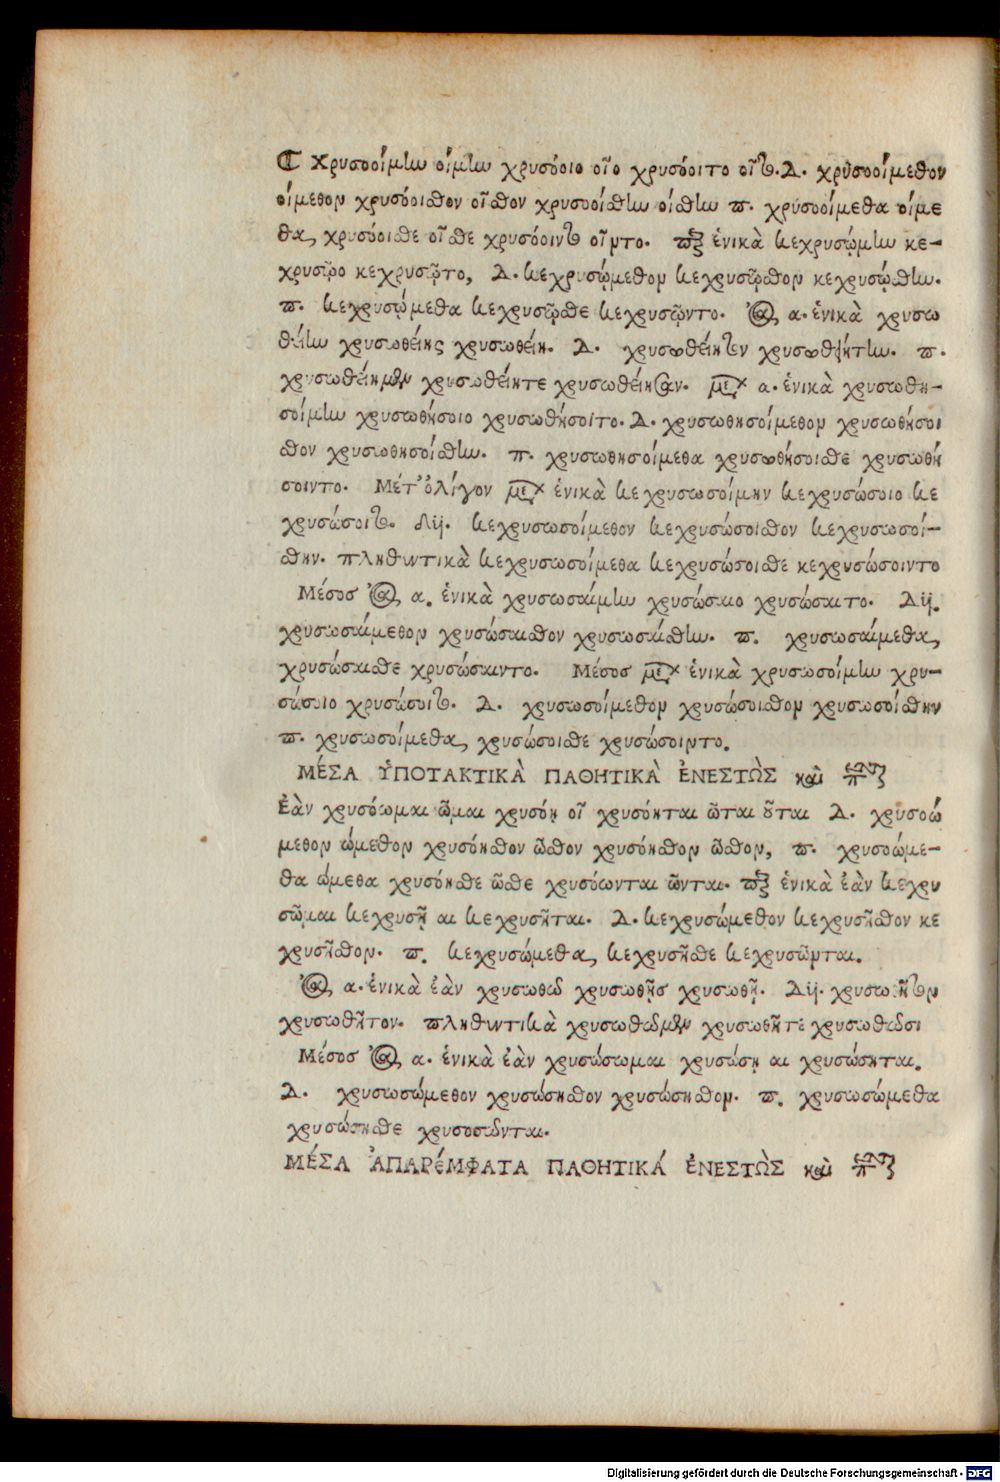 Χρυσοοίμην οίμην χρυσόοιο οῖο χρυσόοιτο οῖτο. Δ. χρυσοοίμεθον
οίμεθον χρυσόοισθον οῖσθον χρυσοοίσθην οίσθην π. χρυσοοίμεθα οίμε
θα, χρυσόοισθε οῖσθε χρυσόοιντο οῖντο. ἑνικὰ κεχρυσῴμην κε-
χρυσῷο κεχρυσῷτο, Δ. κεχρυσῴμεθον κεχρυσῷσθον κεχρυσῴσθην.
π. κεχρυσῴμεθα κεχρυσῷσθε κεχρυσῷντο. α. ἑνικὰ χρυσω
θείην χρυσωθείης χρυσωθείη. Δ. χρυσωθείητον χρυσωθειήτην. π.
χρυσωθείημεν χρυσωθείητε χρυσωθείησαν. α. ἑνικὰ χρυσωθη-
σοίμην χρυσωθήσοιο χρυσωθήσοιτο. Δ. χρυσωθησοίμεθον χρυσωθήσοι
σθον χρυσωθησοίσθην. π. χρυσωθησοίμεθα χρυσωθήσοισθε χρυσωθή
σοιντο. Μέτ' ὀλίγον ἑνικὰ κεχρυσωσοίμην κεχρυσώσοιο κε
χρυσώσοιτο. Δϊ. κεχρυσωσοίμεθον κεχρυσώσοισθον κεχρυσωσοί-
σθην. πληθυντικὰ κεχρυσωσοίμεθα κεχρυσώσοισθε κεχρυσώσοιντο
Μέσος α. ἑνικὰ χρυσωσαίμην χρυσώσαιο χρυσώσαιτο. Δϊ.
χρυσωσαίμεθον χρυσώσαισθον χρυσωσαίσθην. π. χρυσωσαίμεθα,
χρυσώσαισθε χρυσώσαιντο. Μέσος ἑνικὰ χρυσωσοίμην χρυ-
σώσοιο χρυσώσοιτο. Δ. χρυσωσοίμεθον χρυσώσοισθον χρυσωσοίσθην
π. χρυσωσοίμεθα, χρυσώσοισθε χρυσώσοιντο.
ΜΈΣΑ ὙΠΟΤΑΚΤΙΚᾺ ΠΑΘΗΤΙΚᾺ ἘΝΕΣΤῺΣ καὶ
Ἐὰν χρυσόωμαι ῶμαι χρυσόῃ οῖ χρυσόηται ῶται οῦται Δ. χρυσοώ
μεθον ώμεθον χρυσόησθον ῶσθον χρυσόησθον ῶσθον, π. χρυσοώμε-
θα ώμεθα χρυσόησθε ῶσθε χρυσόωνται ῶνται. ἑνικὰ ἐὰν κεχρυ
σῶμαι κεχρυσῇ αι κεχρυσῆται. Δ. κεχρυσώμεθον κεχρυσῆσθον κε
χρυσῆσθον. π. κεχρυσώμεθα, κεχρυσῆσθε κεχρυσῶνται.
α. ἑνικὰ ἐὰν χρυσωθῶ χρυσωθῇς χρυσωθῇ. Δϊ. χρυσωθῆτον
χρυσωθῆτον. πληθυντικὰ χρυσωθῶμεν χρυσωθῆτε χρυσωθῶσι
Μέσος α. ἑνικὰ ἐὰν χρυσώσωμαι χρυσώσῃ αι χρυσώσηται.
Δ. χρυσωσώμεθον χρυσώσησθον χρυσώσησθον. π. χρυσωσώμεθα
χρυσώσησθε χρυσοσῶνται.
ΜΈΣΑ ἈΠΑΡΈΜΦΑΤΑ ΠΑΘΗΤΙΚΆ ἘΝΕΣΤῺΣ καὶ
Digitalisierung gefördert durch die Deutsche Forschungsgemeinschaft - DFG